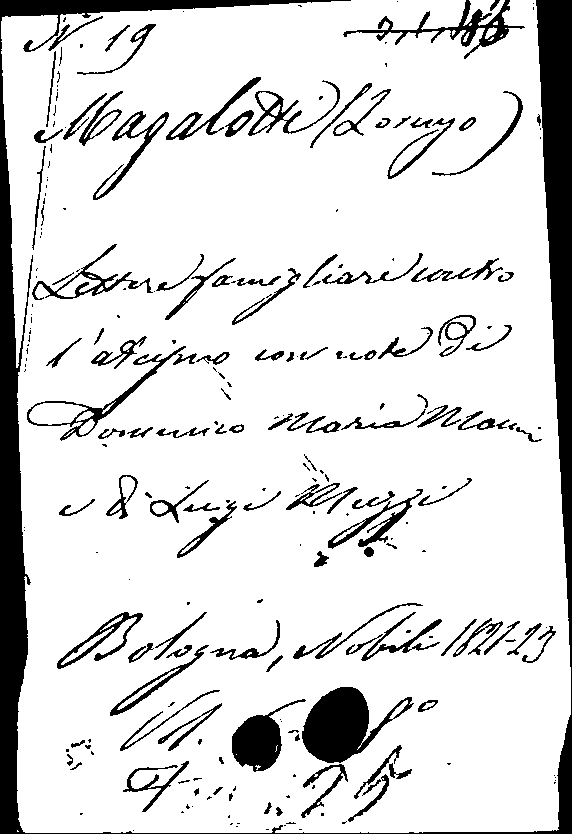 N. 19
Magalotti (Lorenzo)
Lettere famigliari contro
l'ateismo con note di
Domenico Maria Manni
e di Luigi Muzzi
Bologna, Nobili 1821-23
Vol. 8º